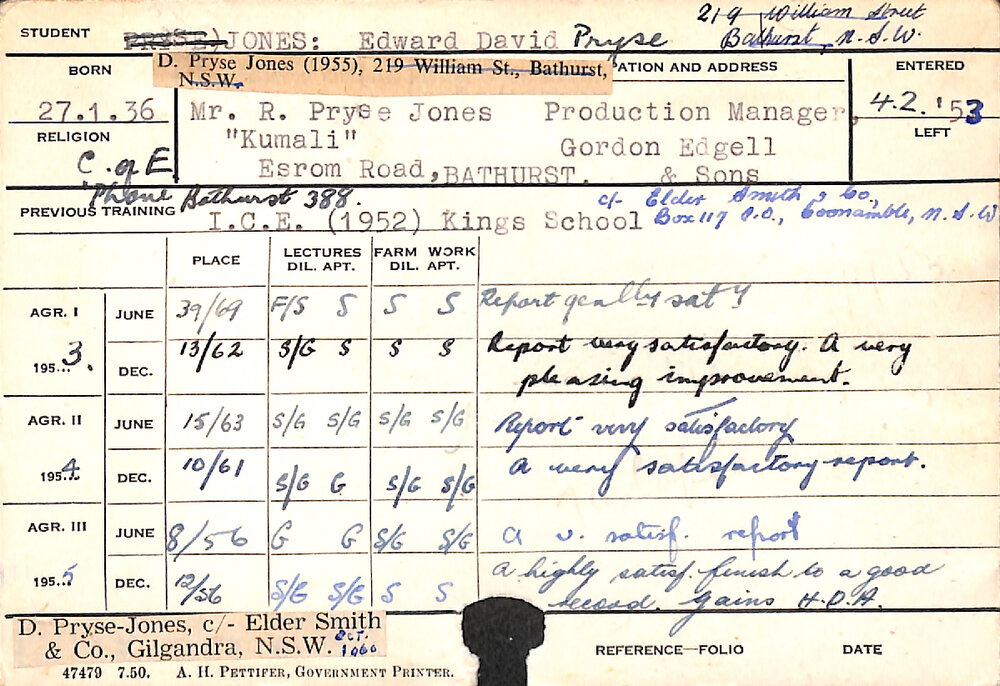 219 William Street
STUDENT PRYSE) JONES: Edward David Pryse Bathurst, N.S.W.
BORN D. Pryse Jones (1955), 219 William St., Bathurst, N.S.W. PATION AND ADDRESS ENTERED
27.1.36 Mr. R. Pryse Jones Production Manager, 4.2.'53
RELIGION "Kumali" Gordon Edgell LEFT
C. of E Esrom Road, BATHURST. & Sons
'Phone Bathurst 388. c/- Elder Smith & Co.,
PREVIOUS TRAINING I.C.E. (1952) Kings School Box 117 P.O., Coonamble, N.S.W
PLACE LECTURES FARM WORK
DIL. APT. DIL. APT.
AGR. I JUNE 39/69 F/S S S S Report genlly saty
1953. DEC. 13/62 S/G S S S Report very satisfactory. A very
pleasing improvement.
AGR. II JUNE 15/63 S/G S/G S/G S/G Report very satisfactory
195..4 DEC. 10/61 S/G G S/G S/G A very satisfactory report.
AGR. III JUNE 8/56 G G S/G S/G A v. satisf. report
195..5 DEC. 12/56 S/G S/G S S A highly satisf. finish to a good
record. Gains H.D.A.
D. Pryse-Jones, c/- Elder Smith
& Co., Gilgandra, N.S.W. Oct. 1960
REFERENCE—FOLIO DATE
47479 7.50. A. H. PETTIFER, GOVERNMENT PRINTER.